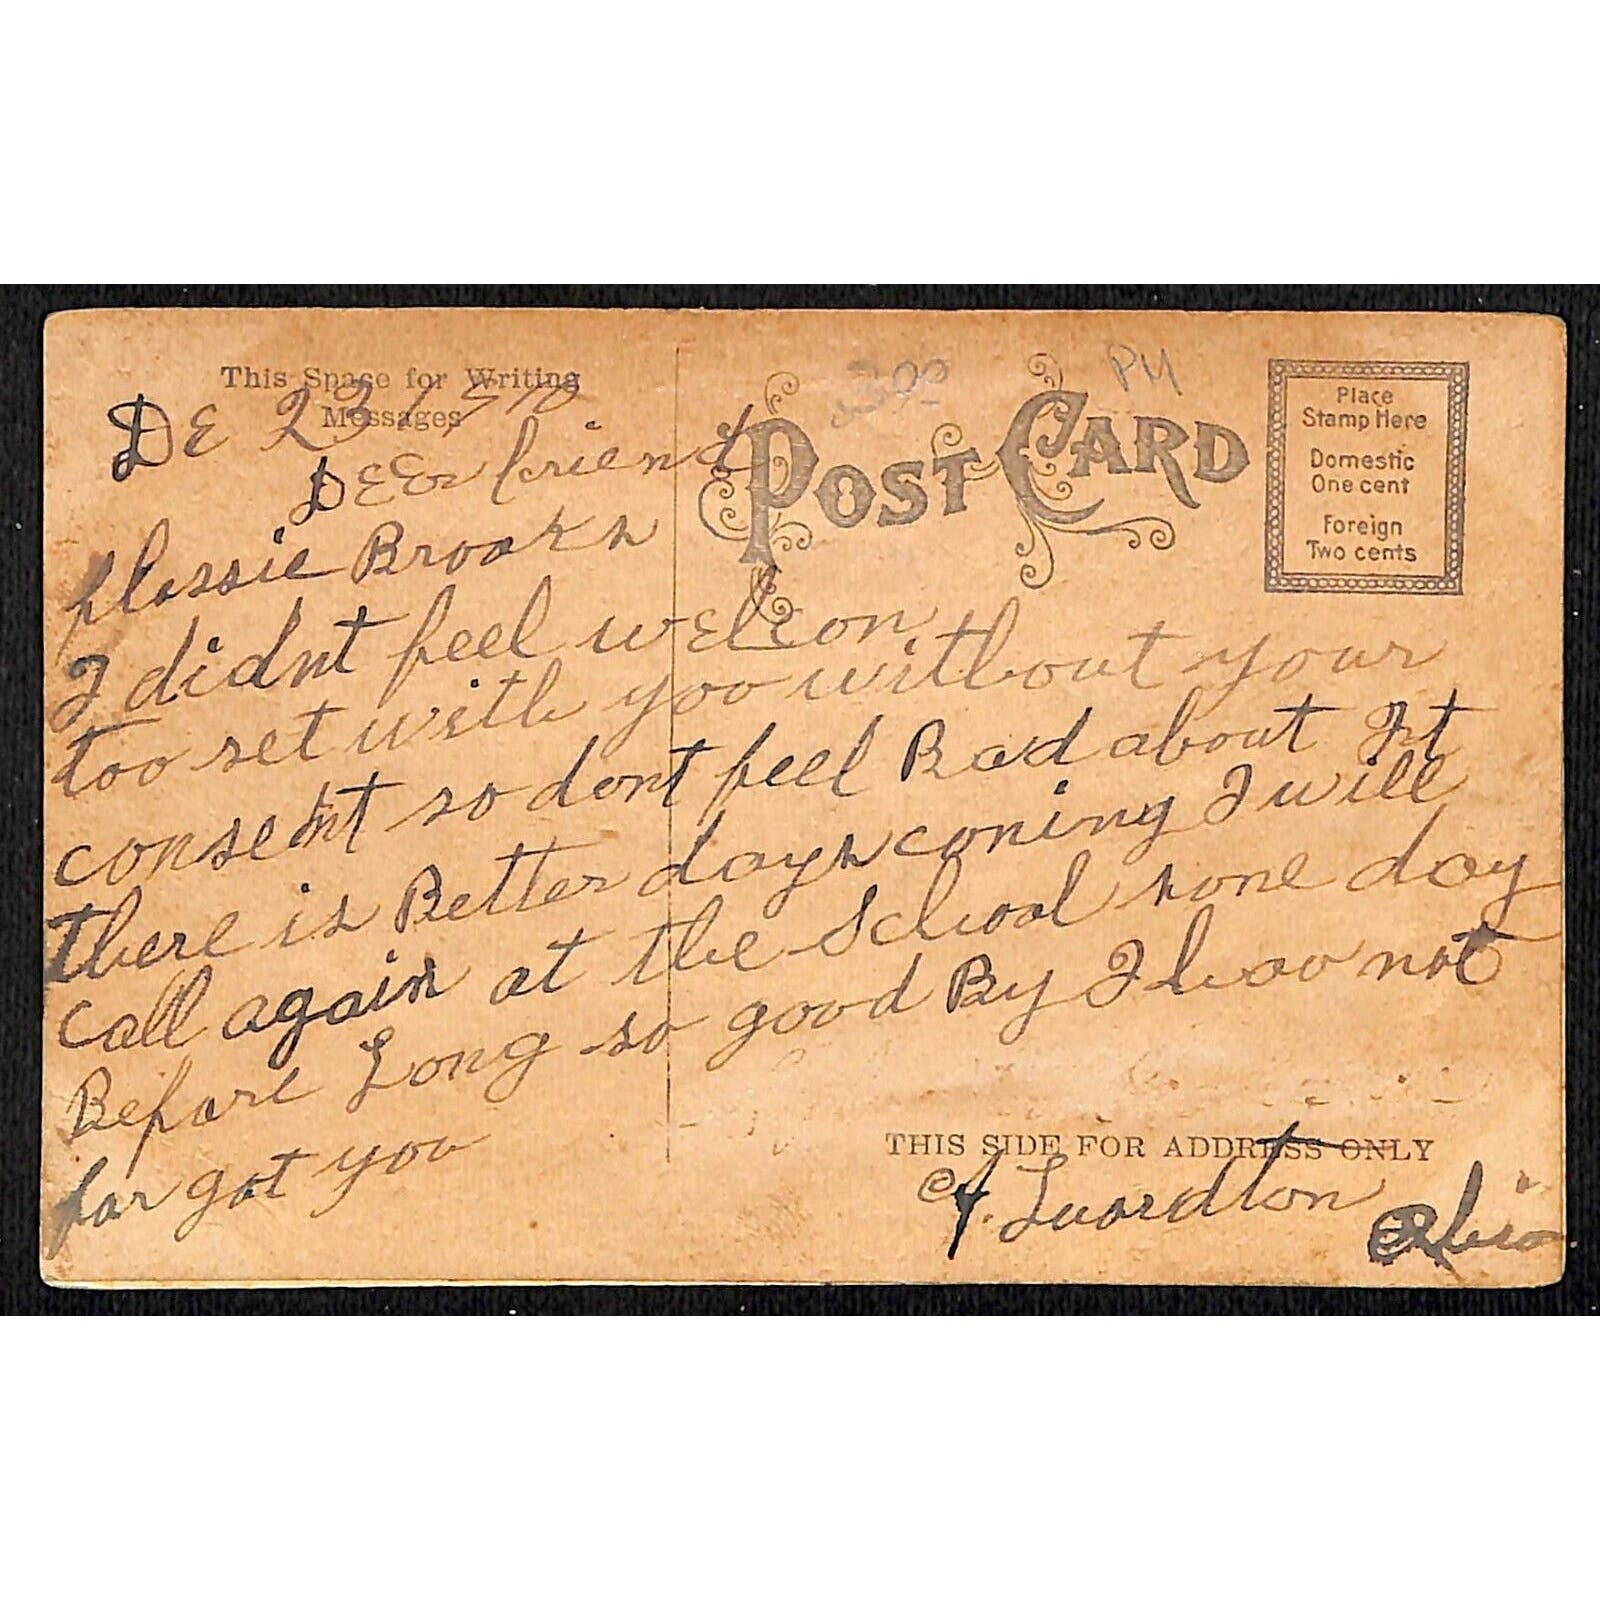 This Space for Writing
Messages
POST CARD
Place
Stamp Here
Domestic
One cent
Foreign
Two cents
300
PM
DE 23
DEEr friend
flossie Brooks
I didnt feel welcon
too set with you without your
consent so dont feel Bad about It
there is Better days coming I will
call again at the School some day
Before Long so good By I hav not
for got you
THIS SIDE FOR ADDRESS ONLY
Ohio